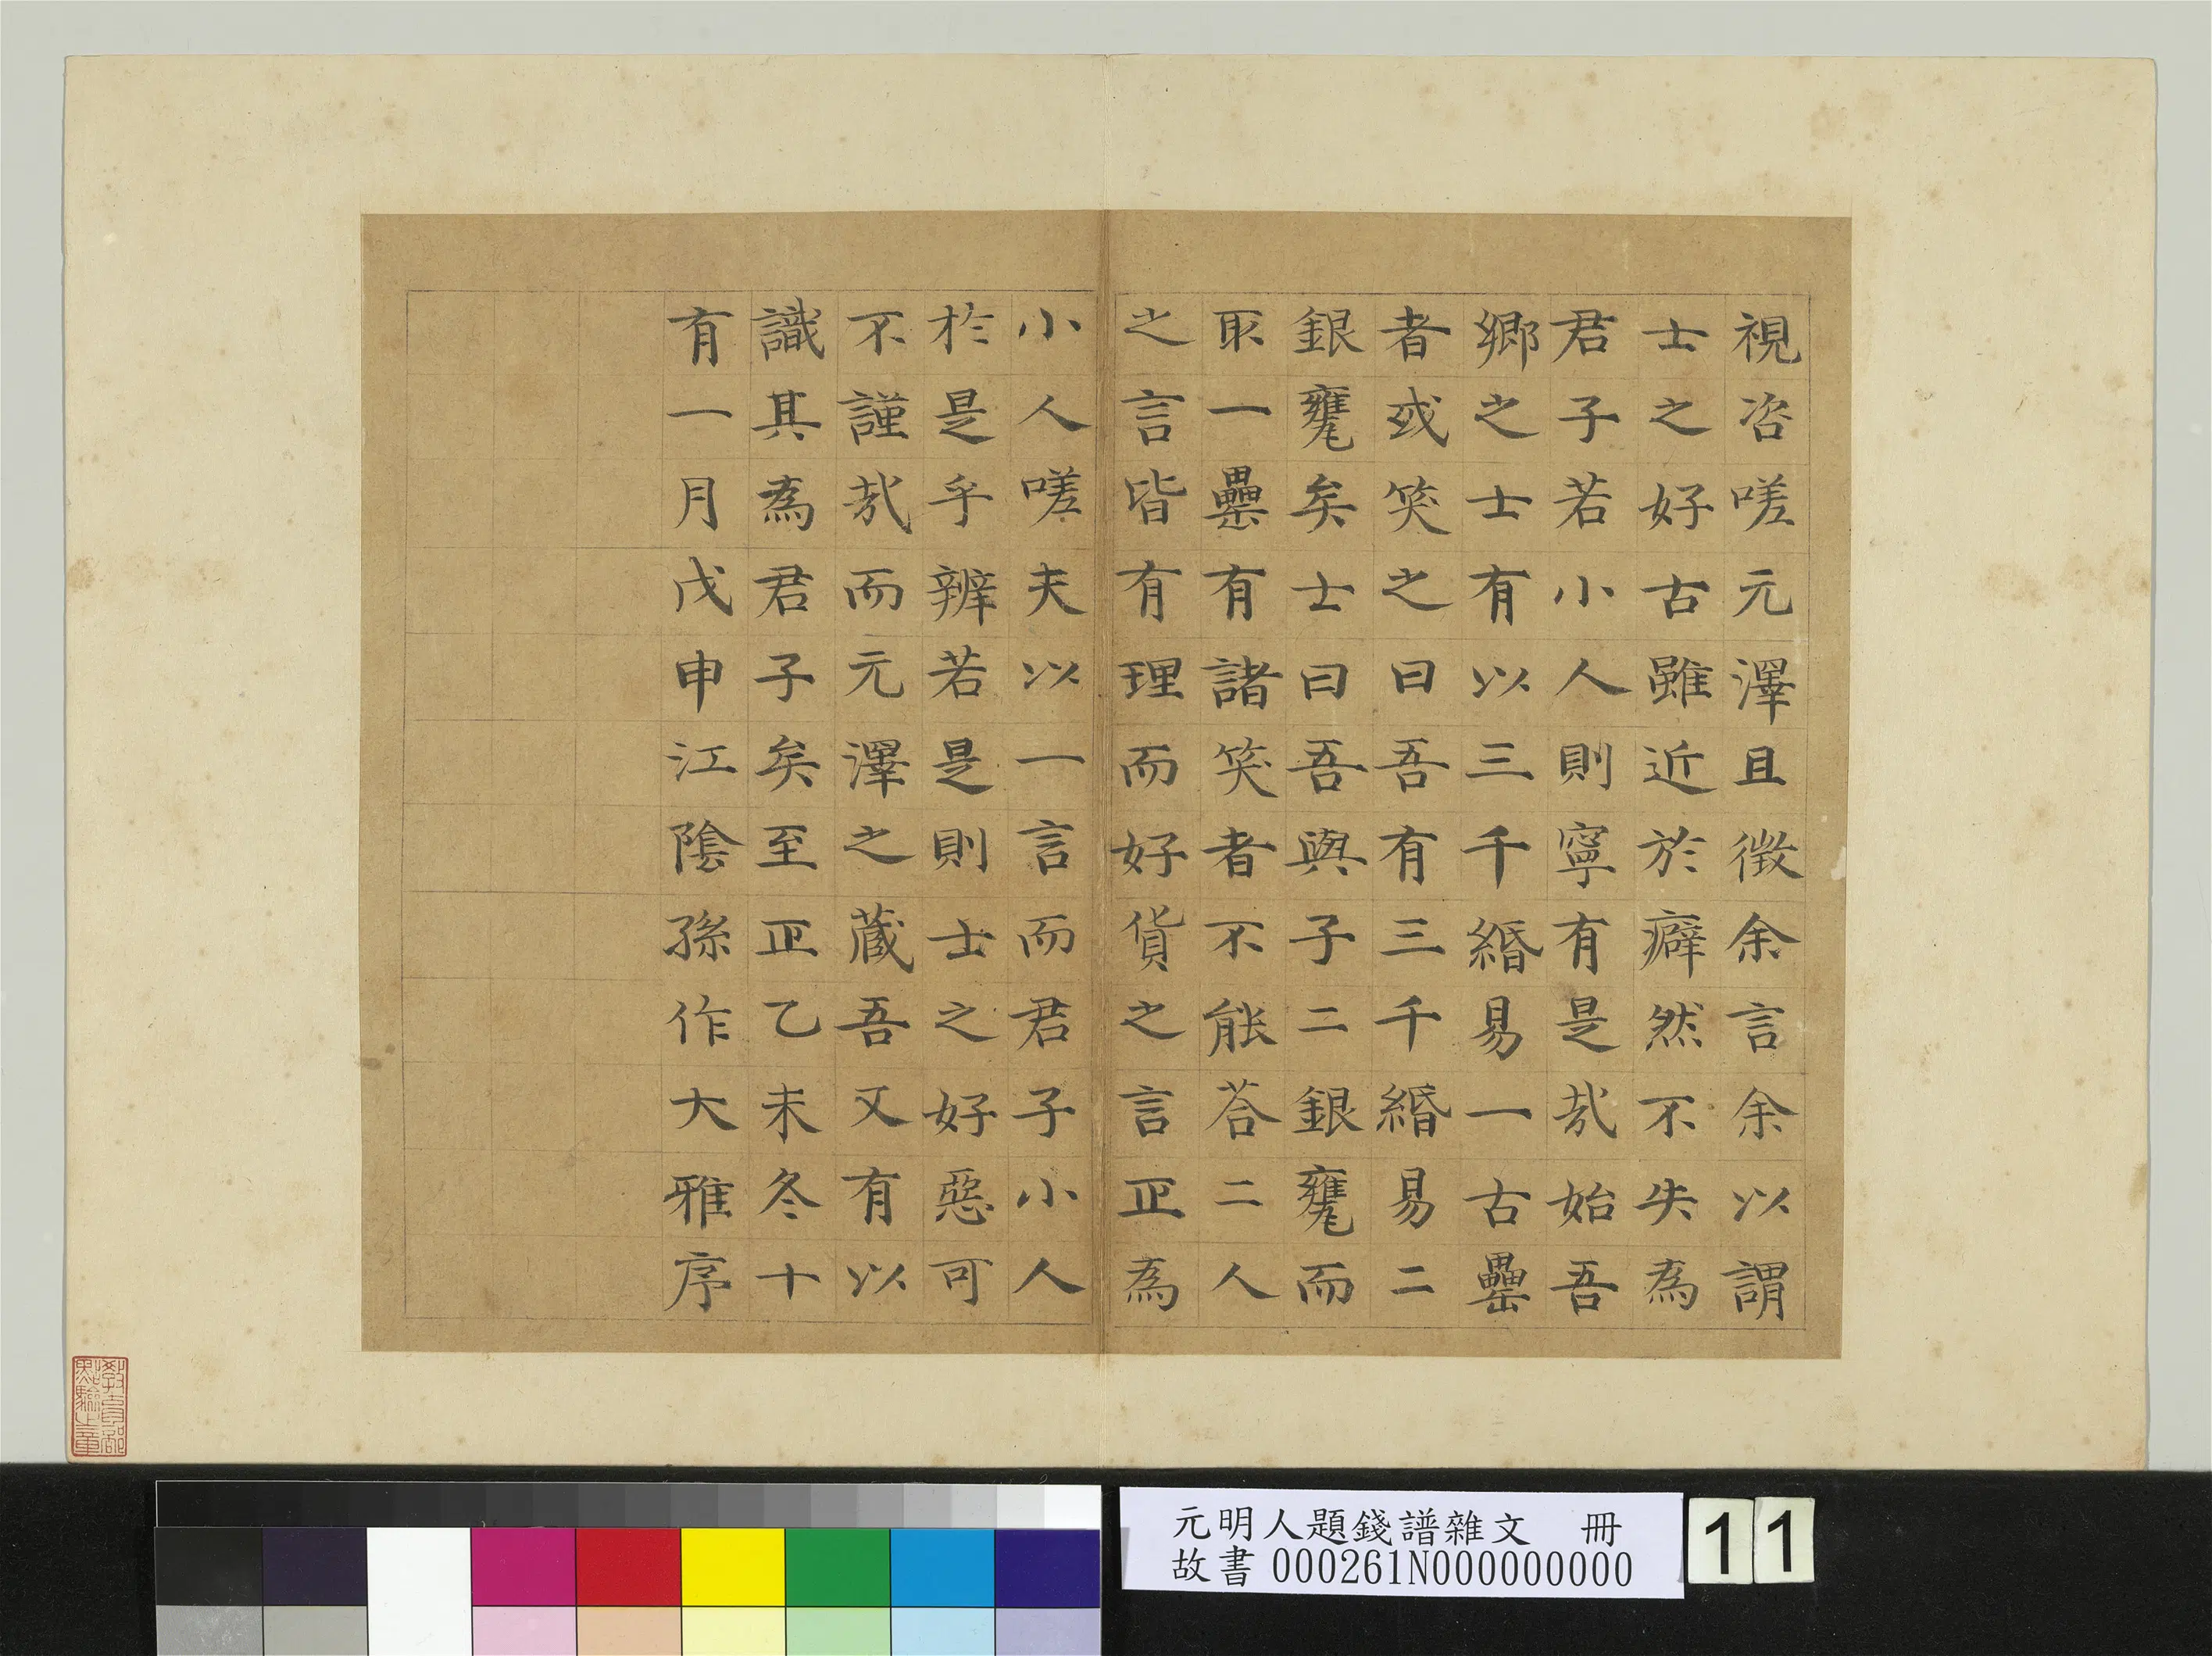 視咨嗟元澤且徵余言余以謂
士之好古雖近於癖然不失為
君子若小人則寧有是哉始吾
鄉之士有以三千緡易一古罍
者或笑之曰吾有三千緡易二
銀甕矣士曰吾與子二銀甕而
取一罍有諸笑者不能荅二人
之言皆有理而好貨之言正為
小人嗟夫以一言而君子小人
於是乎辨若是則士之好惡可
不謹哉而元澤之藏吾又有以
識其為君子矣至正乙未冬十
有一月戊申江陰孫作大雅序
教育部
點驗之章
元明人題錢譜雜文 冊
故書000261N000000000
11